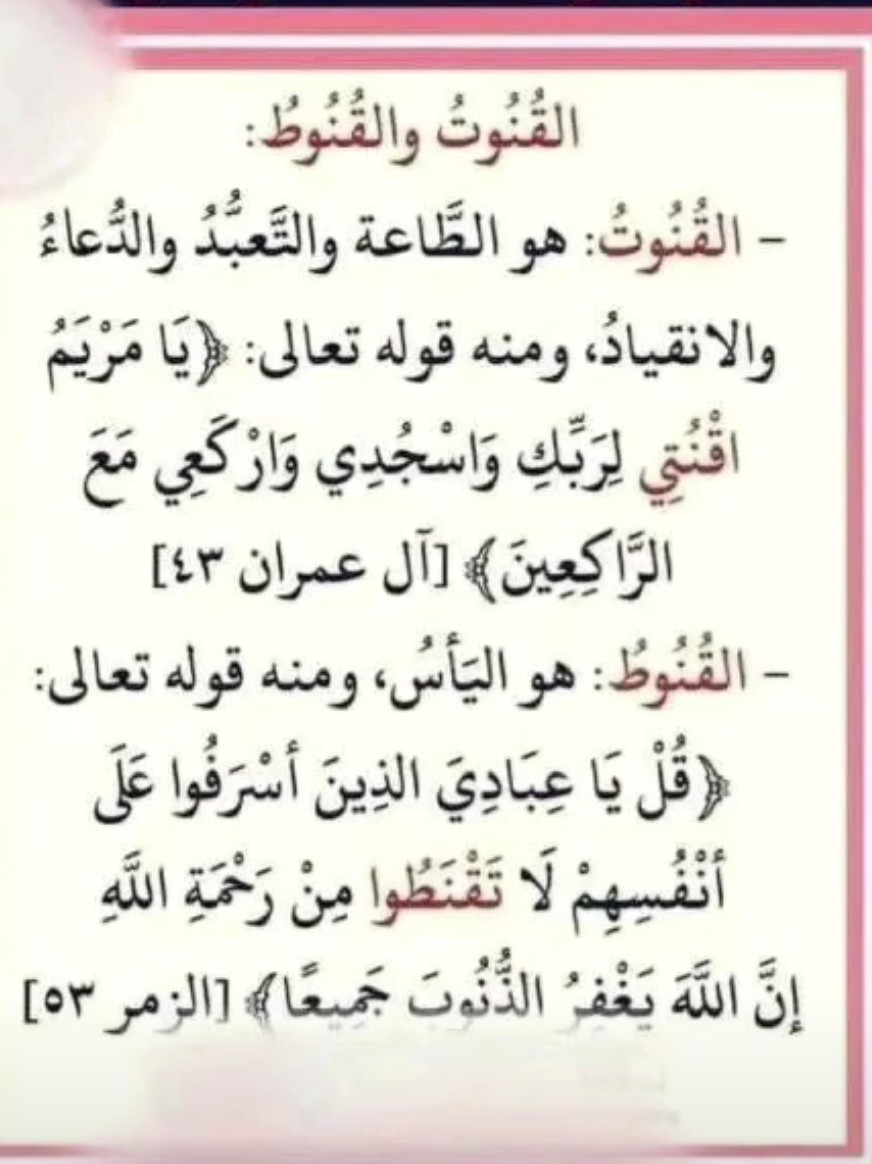 القُنُوتُ والقُنُوطُ:
- القُنُوتُ: هو الطَّاعة والتَّعبُّدُ والدُّعاءُ
والانقيادُ، ومنه قوله تعالى: ﴿يَا مَرْيَمُ
اقْنُتِي لِرَبِّكِ وَاسْجُدِي وَارْكَعِي مَعَ
الرَّاكِعِينَ﴾ [آل عمران ٤٣]
- القُنُوطُ: هو اليَأسُ، ومنه قوله تعالى:
﴿قُلْ يَا عِبَادِيَ الذِينَ أسْرَفُوا عَلَى
أنْفُسِهِمْ لَا تَقْنَطُوا مِنْ رَحْمَةِ اللَّهِ
إنَّ اللَّهَ يَغْفِرُ الذُّنُوبَ جَمِيعًا﴾ [الزمر ٥٣]